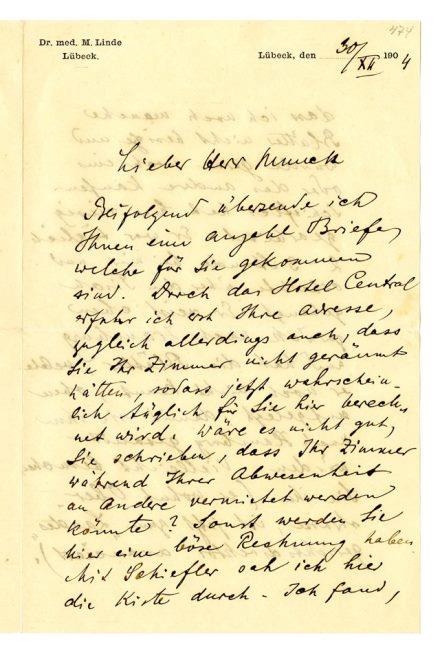 474
Dr. med. M. Linde
Lübeck.
Lübeck, den 30/XII 1904
Lieber Herr Munch
Beifolgend übersende ich
Ihnen eine Anzahl Briefe,
welche für Sie gekommen
sind. Durch das Hotel Central
erfuhr ich erst Ihre Adresse,
zugleich allerdings auch, dass
Sie Ihr Zimmer nicht geräumt
hätten, sodass jetzt wahrschein-
lich täglich für Sie hier berech-
net wird. Wäre es nicht gut,
Sie schrieben, dass Ihr Zimmer
während Ihrer Abwesenheit
an Andere vermietet werden
könnte? Sonst werden Sie
hier eine böse Rechnung haben.
Mit Schiefler sah ich hier
die Kiste durch - Ich fand,